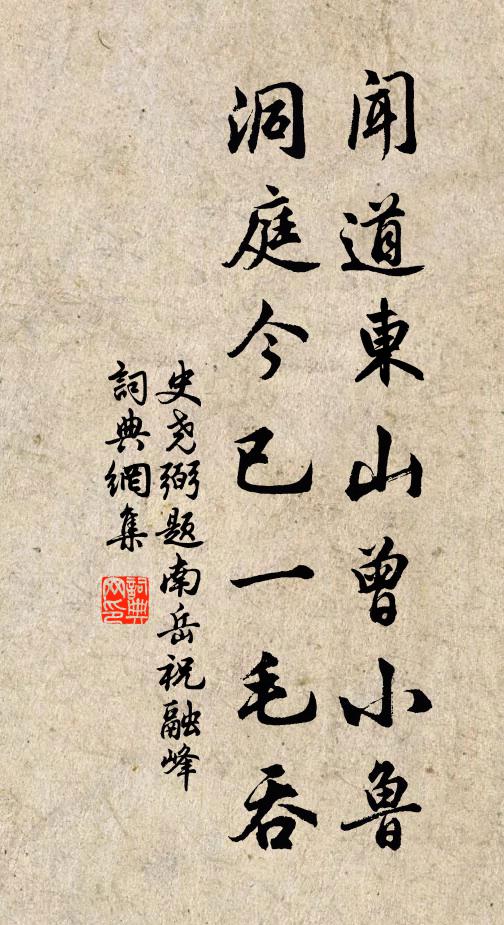 聞道東山曾小魯
洞庭今已一毛吞
史尧弼题南岳祝融峰
詞典網集
詞典網印